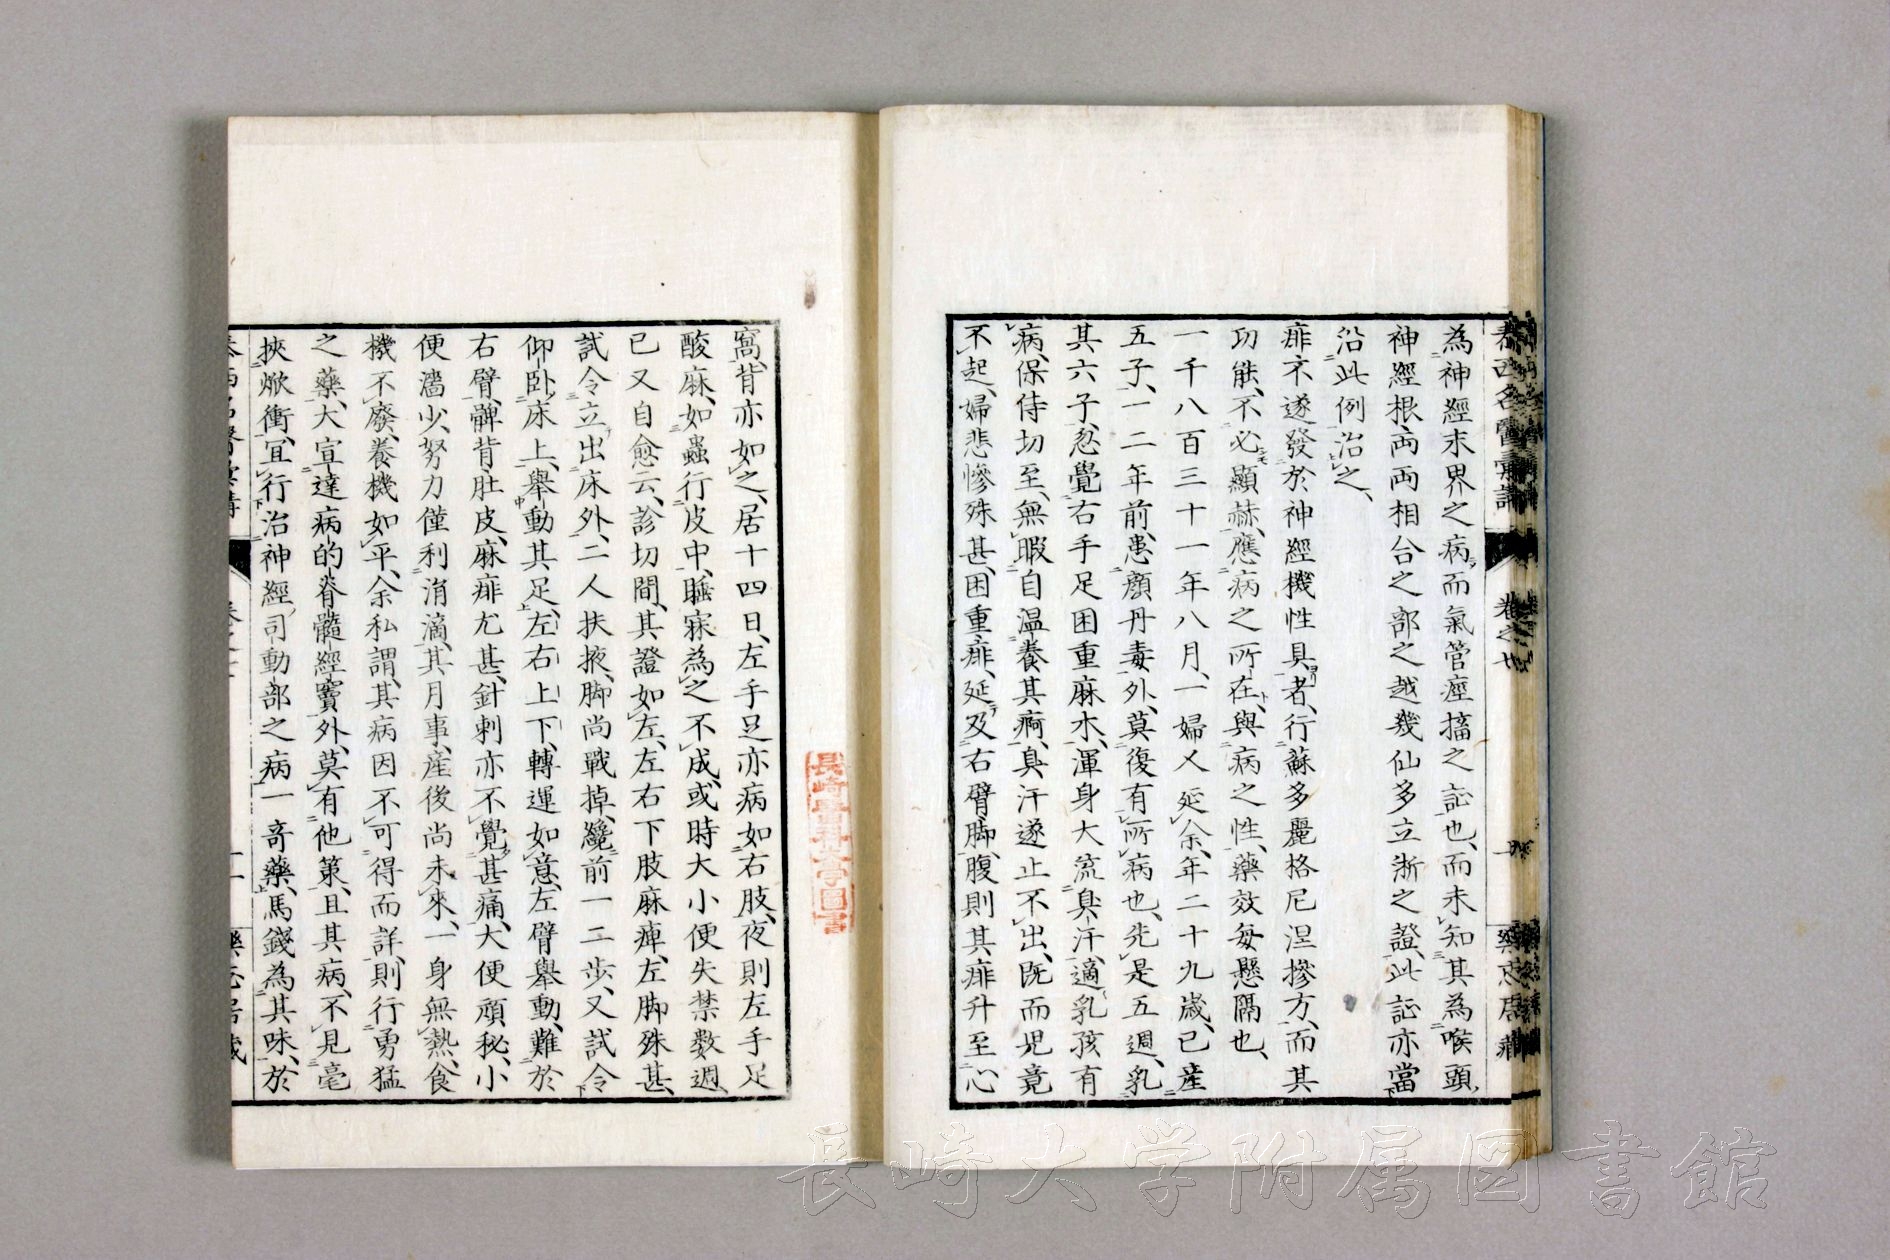 泰西名醫彙講
卷之廿
為神經末界之病、而氣管痙搐之証也、而未知其為喉頭
神經根、両両相合之部之越幾仙多立浙之證、此証亦當
沿此例治之、
痱不遂發於神經機性具者、行蘇多麗格尼涅摻方、而其
功能、不必顯赫、應病之所在、與病之性、藥效每懸隔也、
一千八百三十一年八月、一婦乂延余、年二十九歳、已産
五子、一二年前、患顏丹毒外、莫復有所病也、先是五週、乳
其六子、忽覺右手足困重麻木、渾身大流臭汗、適乳孩有
病、保侍切至、無暇自温養其痾、臭汗遂止不出、既而児竟
不起、婦悲慘殊甚、困重痱、延及右臂、脚、腹則其痱升至心
窩、背亦如之、居十四日、左手足亦病如右肢、夜則左手足
酸麻、如蟲行皮中、睡寐為之不成、或時大小便失禁數週、
已又自愈云、診切間、其證如左、左右下肢麻痺、左脚殊甚、
試令立出床外、二人扶掖、脚尚戰掉、纔前一二歩、又試令
仰卧床上、舉動其足、左右上下、轉運如意、左臂舉動、難於
右臂、髀背肚皮、麻痱尤甚、針刺亦不覺甚痛、大便頑秘、小
便濇少、努力僅利涓滴、其月事、産後尚未來、一身無熱、食
機不廢、養機如平、余私謂、其病因不可得而詳、則行勇猛
之藥、大宣達病的脊髓經竇外、莫有他策、且其病、不見毫
挾焮衝、宜行治神經司動部之病一奇藥、馬錢為其味、於
長崎醫科大学圖書
長崎大学附属図書館